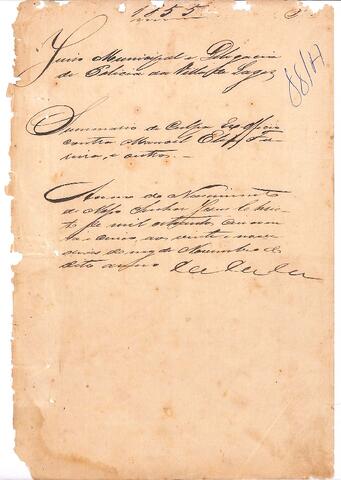 1855
Juizo Municipal e Delegacia
de Policia da Villa de Lages
88/H
Summario de Culpa Ex Officio
contra Manoel
e outros
Anno do Nascimento
de Nosso Senhor Jesus Chris-
to de mil oitocentos cincoen-
ta e cinco, aos vinte e nove
dias do mez de Novembro do
dito anno